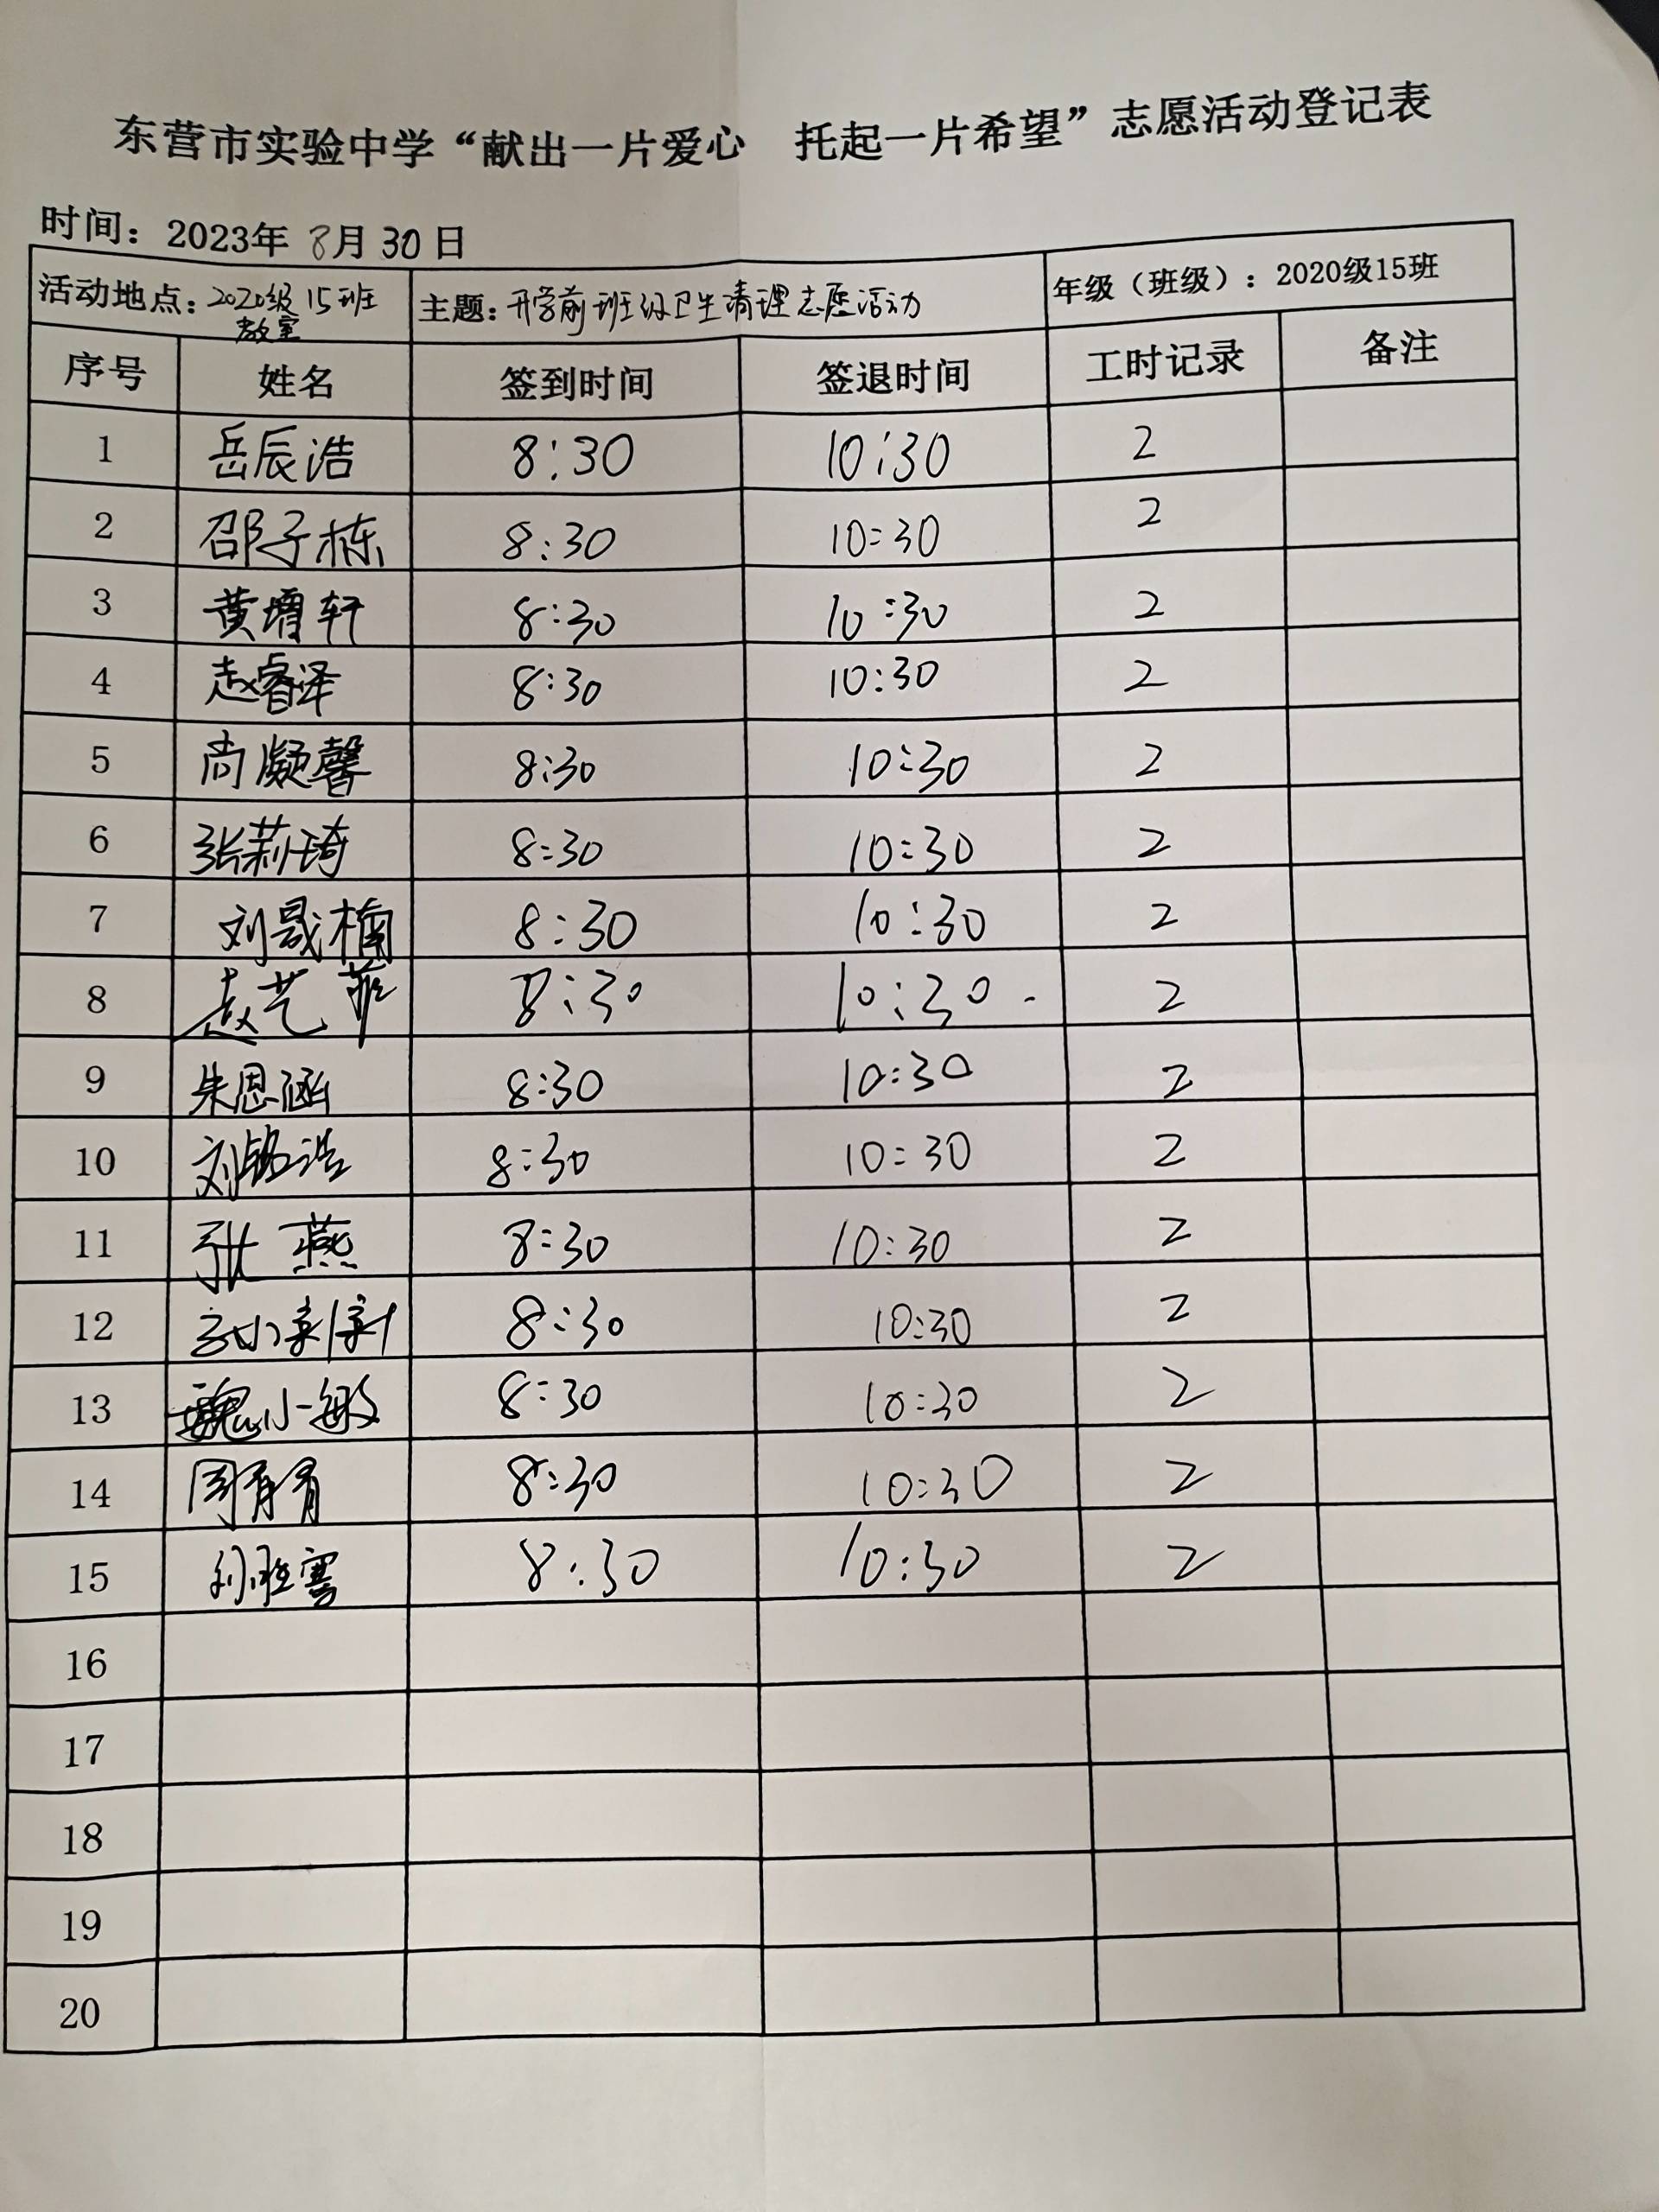 东营市实验中学“献出一片爱心 托起一片希望”志愿活动登记表
时间：2023年 8月 30日
活动地点：2020级15班教室 主题：开学前班级卫生清理志愿活动 年级（班级）：2020级15班
序号 姓名 签到时间 签退时间 工时记录 备注
1 岳辰浩 8:30 10:30 2
2 邵子栋 8:30 10:30 2
3 黄堉轩 8:30 10:30 2
4 赵睿泽 8:30 10:30 2
5 尚凝馨 8:30 10:30 2
6 张莉琦 8:30 10:30 2
7 刘晟楠 8:30 10:30 2
8 赵艺菲 8:30 10:30 2
9 朱恩涵 8:30 10:30 2
10 刘铭浩 8:30 10:30 2
11 张燕 8:30 10:30 2
12 8:30 10:30 2
13 魏小敏 8:30 10:30 2
14 周 8:30 10:30 2
15 8:30 10:30 2
16
17
18
19
20